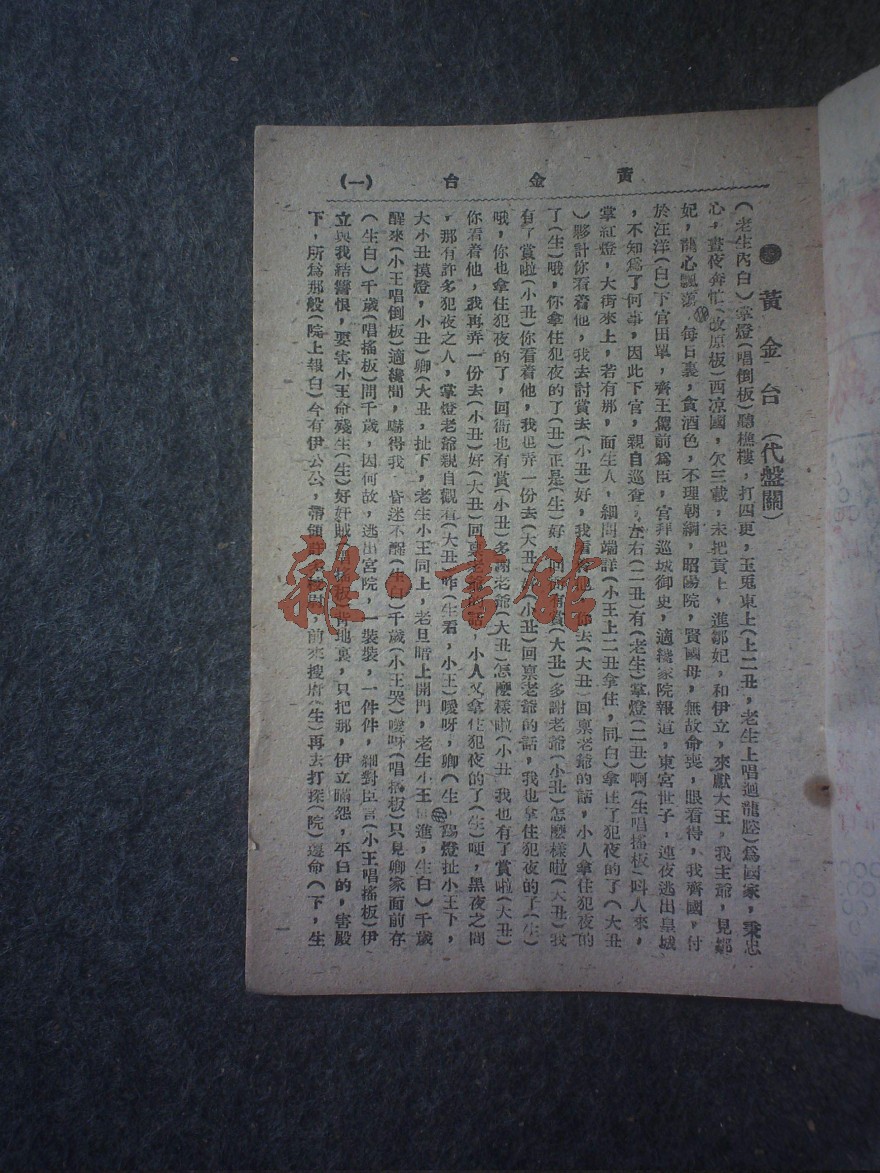 黃金台 (一)
黃金台 (代盤關)
(老生內白)掌燈(唱倒板)聽樵樓，打四更，玉兎東上(上二丑，老生上唱迴龍腔)爲國家，秉忠
心，晝夜奔忙(改原板)西凉國，欠三載，未把貢上，進鄒妃，和伊立，來獻大王，我主爺，見鄒
妃，龍心飄蕩，每日裏，貪酒色，不理朝綱，昭陽院，賢國母，無故命喪，眼看得，我齊國，付
於汪洋(白)下官田單，齊王駕前爲臣，官拜巡城御史，適纔家院報道，東宮世子，連夜逃出皇城
，不知爲了何事，因此下官，親自巡查，左右(二丑)有(老生)掌燈(二丑)啊(生唱搖板)叫人來，
掌紅燈，大街來上，若有那，面生人，細問端詳(小王上二丑拿住，同白)拿住了犯夜的了(大丑
)夥計你看着他，我去討賞去(小丑)好，我看着他，你去(大丑)回禀老爺的話，小人拿住犯夜的
了(生)哦，你拿住犯夜的了(丑)正是(生)好，回衙有賞(大丑)多謝老爺(小丑)怎麼樣啦(大丑)我
有了賞啦(小丑)你看着他，我也弄一份去(大丑)(小丑)回禀老爺的話，我也拿住犯夜的了(生)
哦，你也拿住犯夜的了，回衙也有賞(小丑)多謝老爺(大丑)怎麼樣啦(小丑 我也有了賞啦(大丑)
你看着他，我再弄一份去(小丑)好(大丑)回禀老爺的話，小人又拿住犯夜的了(生)哽，黑夜之間
，那有許多犯夜之人，掌燈老爺親自觀看(大丑)咋(生看，小王)嗳呀，卿(生 踢燈扯小王下，
大小丑摸燈，小丑)卿(大丑，扯下，老生小王同上，老旦暗上開門，老生小王 進，生白)千歲
醒來(小王唱倒板)適纔間，嚇得我 昏迷不醒(生白)千歲(小王哭)嗳呀(唱搖板)只見卿家面前存
(生白)千歲(唱搖板)問千歲，因何故，逃出宮院，一裝裝，一件件，細對臣言(小王唱搖板)伊
立與我結讐恨，要害小王命殘生(生)好奸賊(唱搖板)背地裏，只把那，伊立瞞怨，平白的，害殿
下，所爲那般(院上報白)今有伊公公，帶領，前來搜府(生)再去打探(院)遵命(下，生
雜·書館